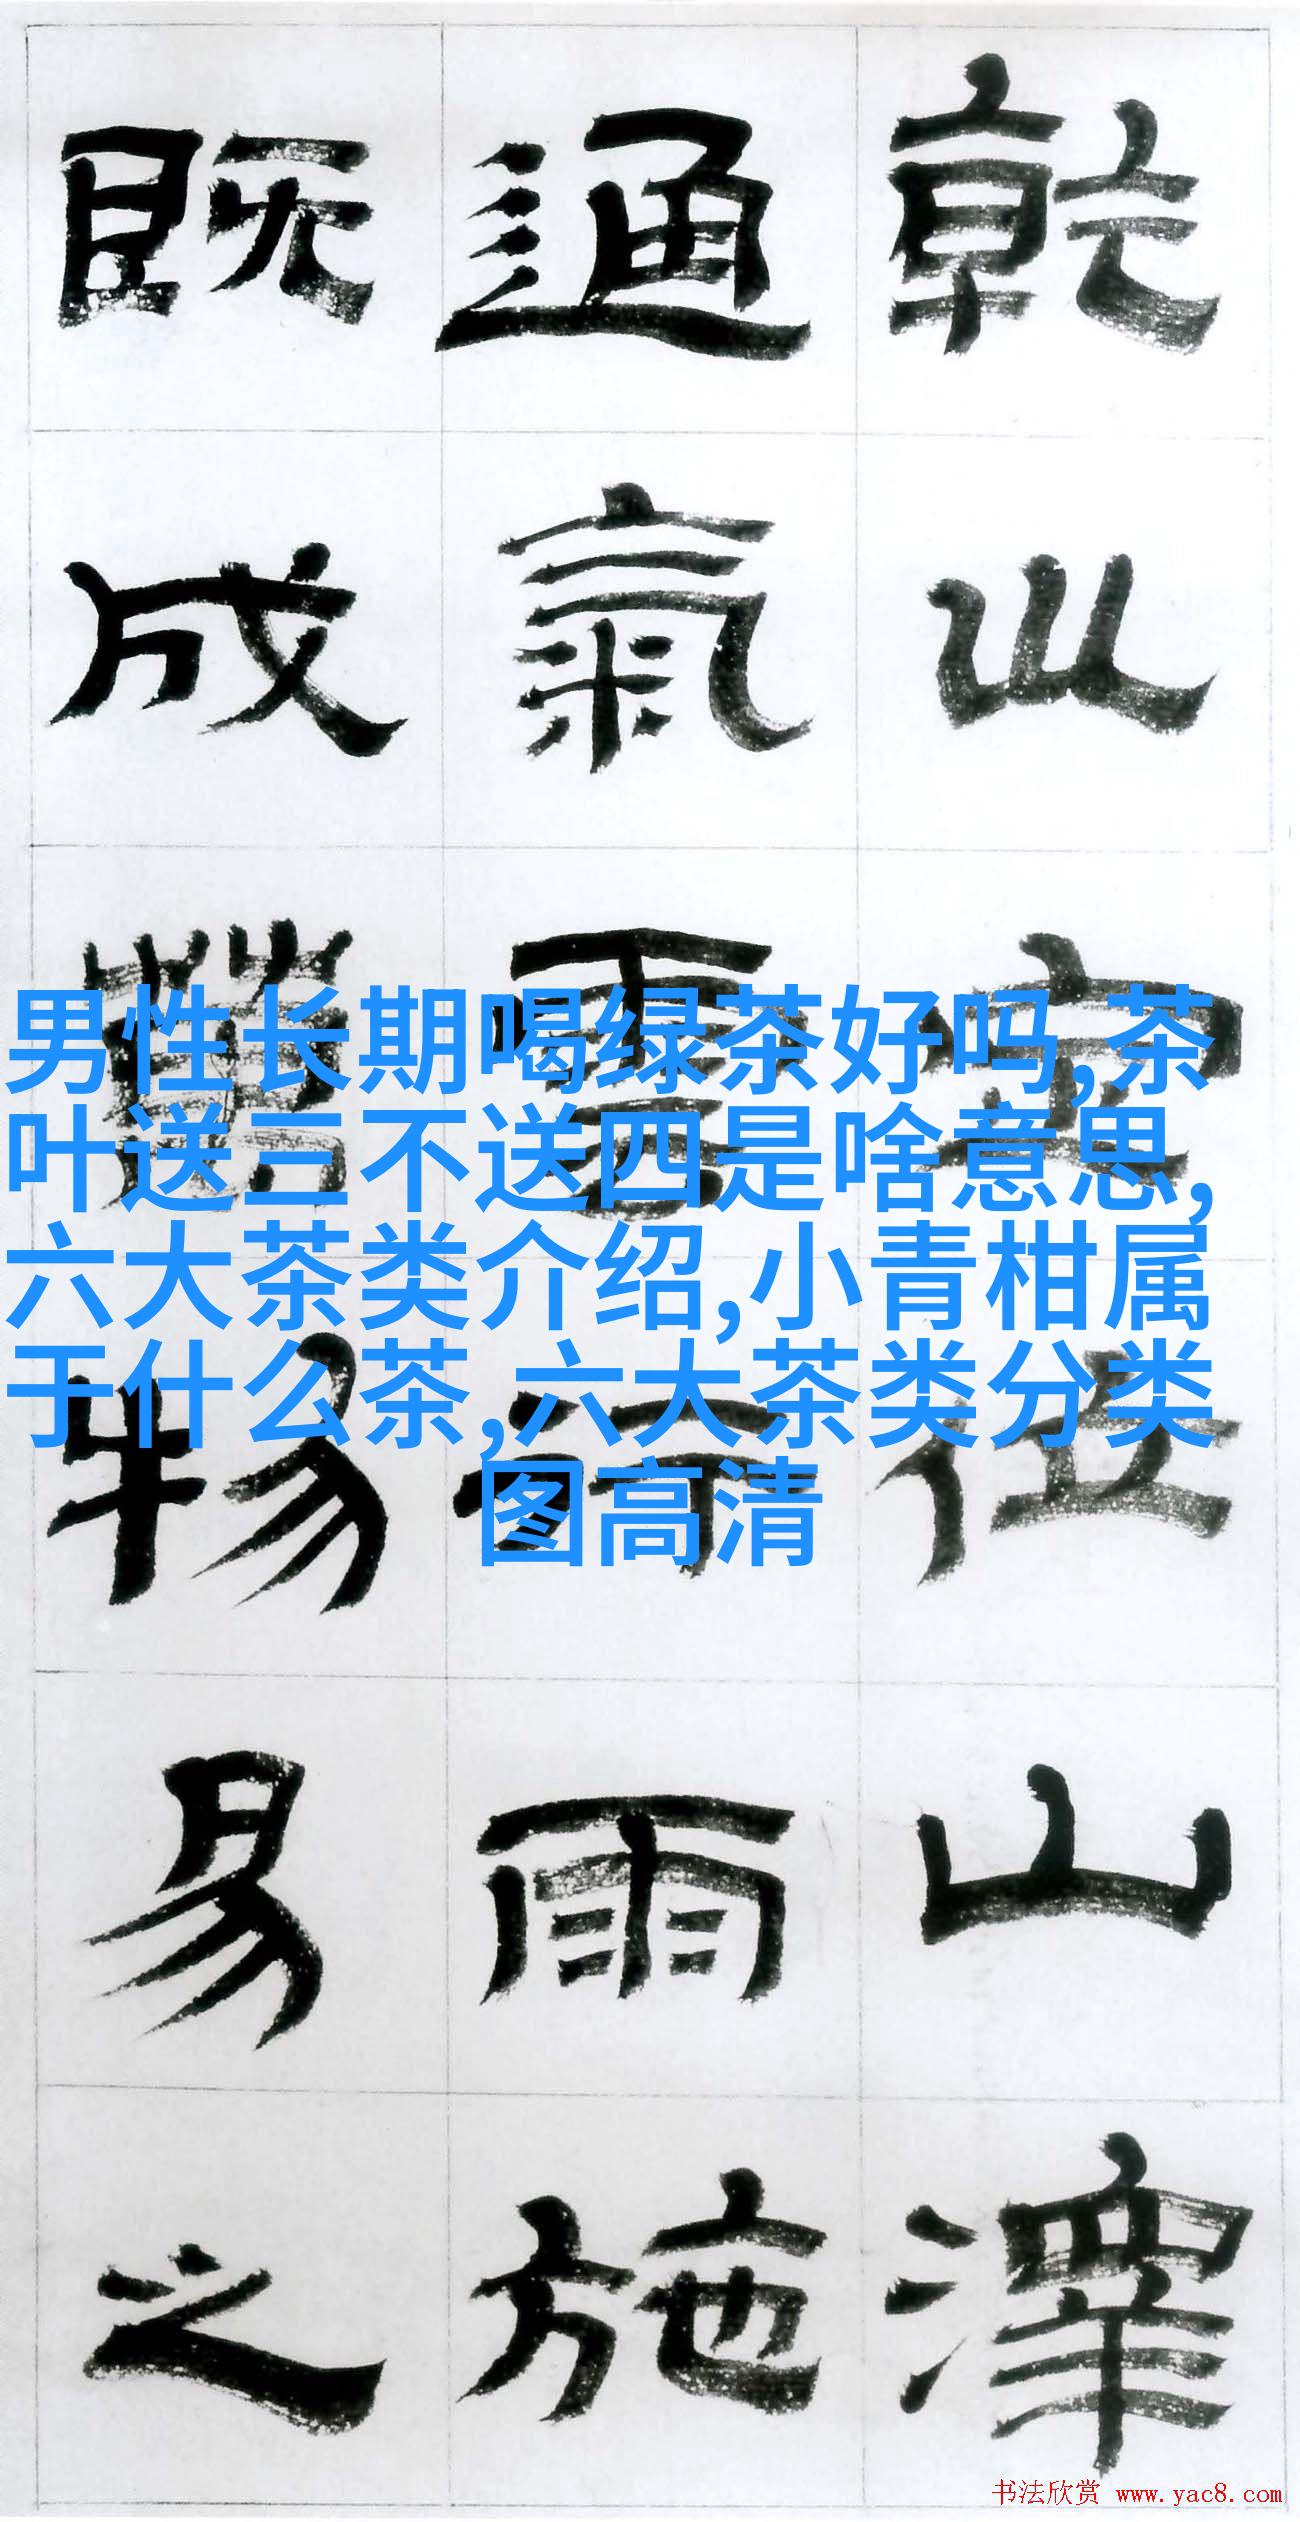 乾坤定位山澤
通氣雲行雨施
既成物易之
男性长期喝绿茶好吗,茶
叶送三不送四是啥意思,
六大茶类介绍,小青柑属
于什么茶,六大茶类分类
图高清
书法欣赏 www.yac8.com